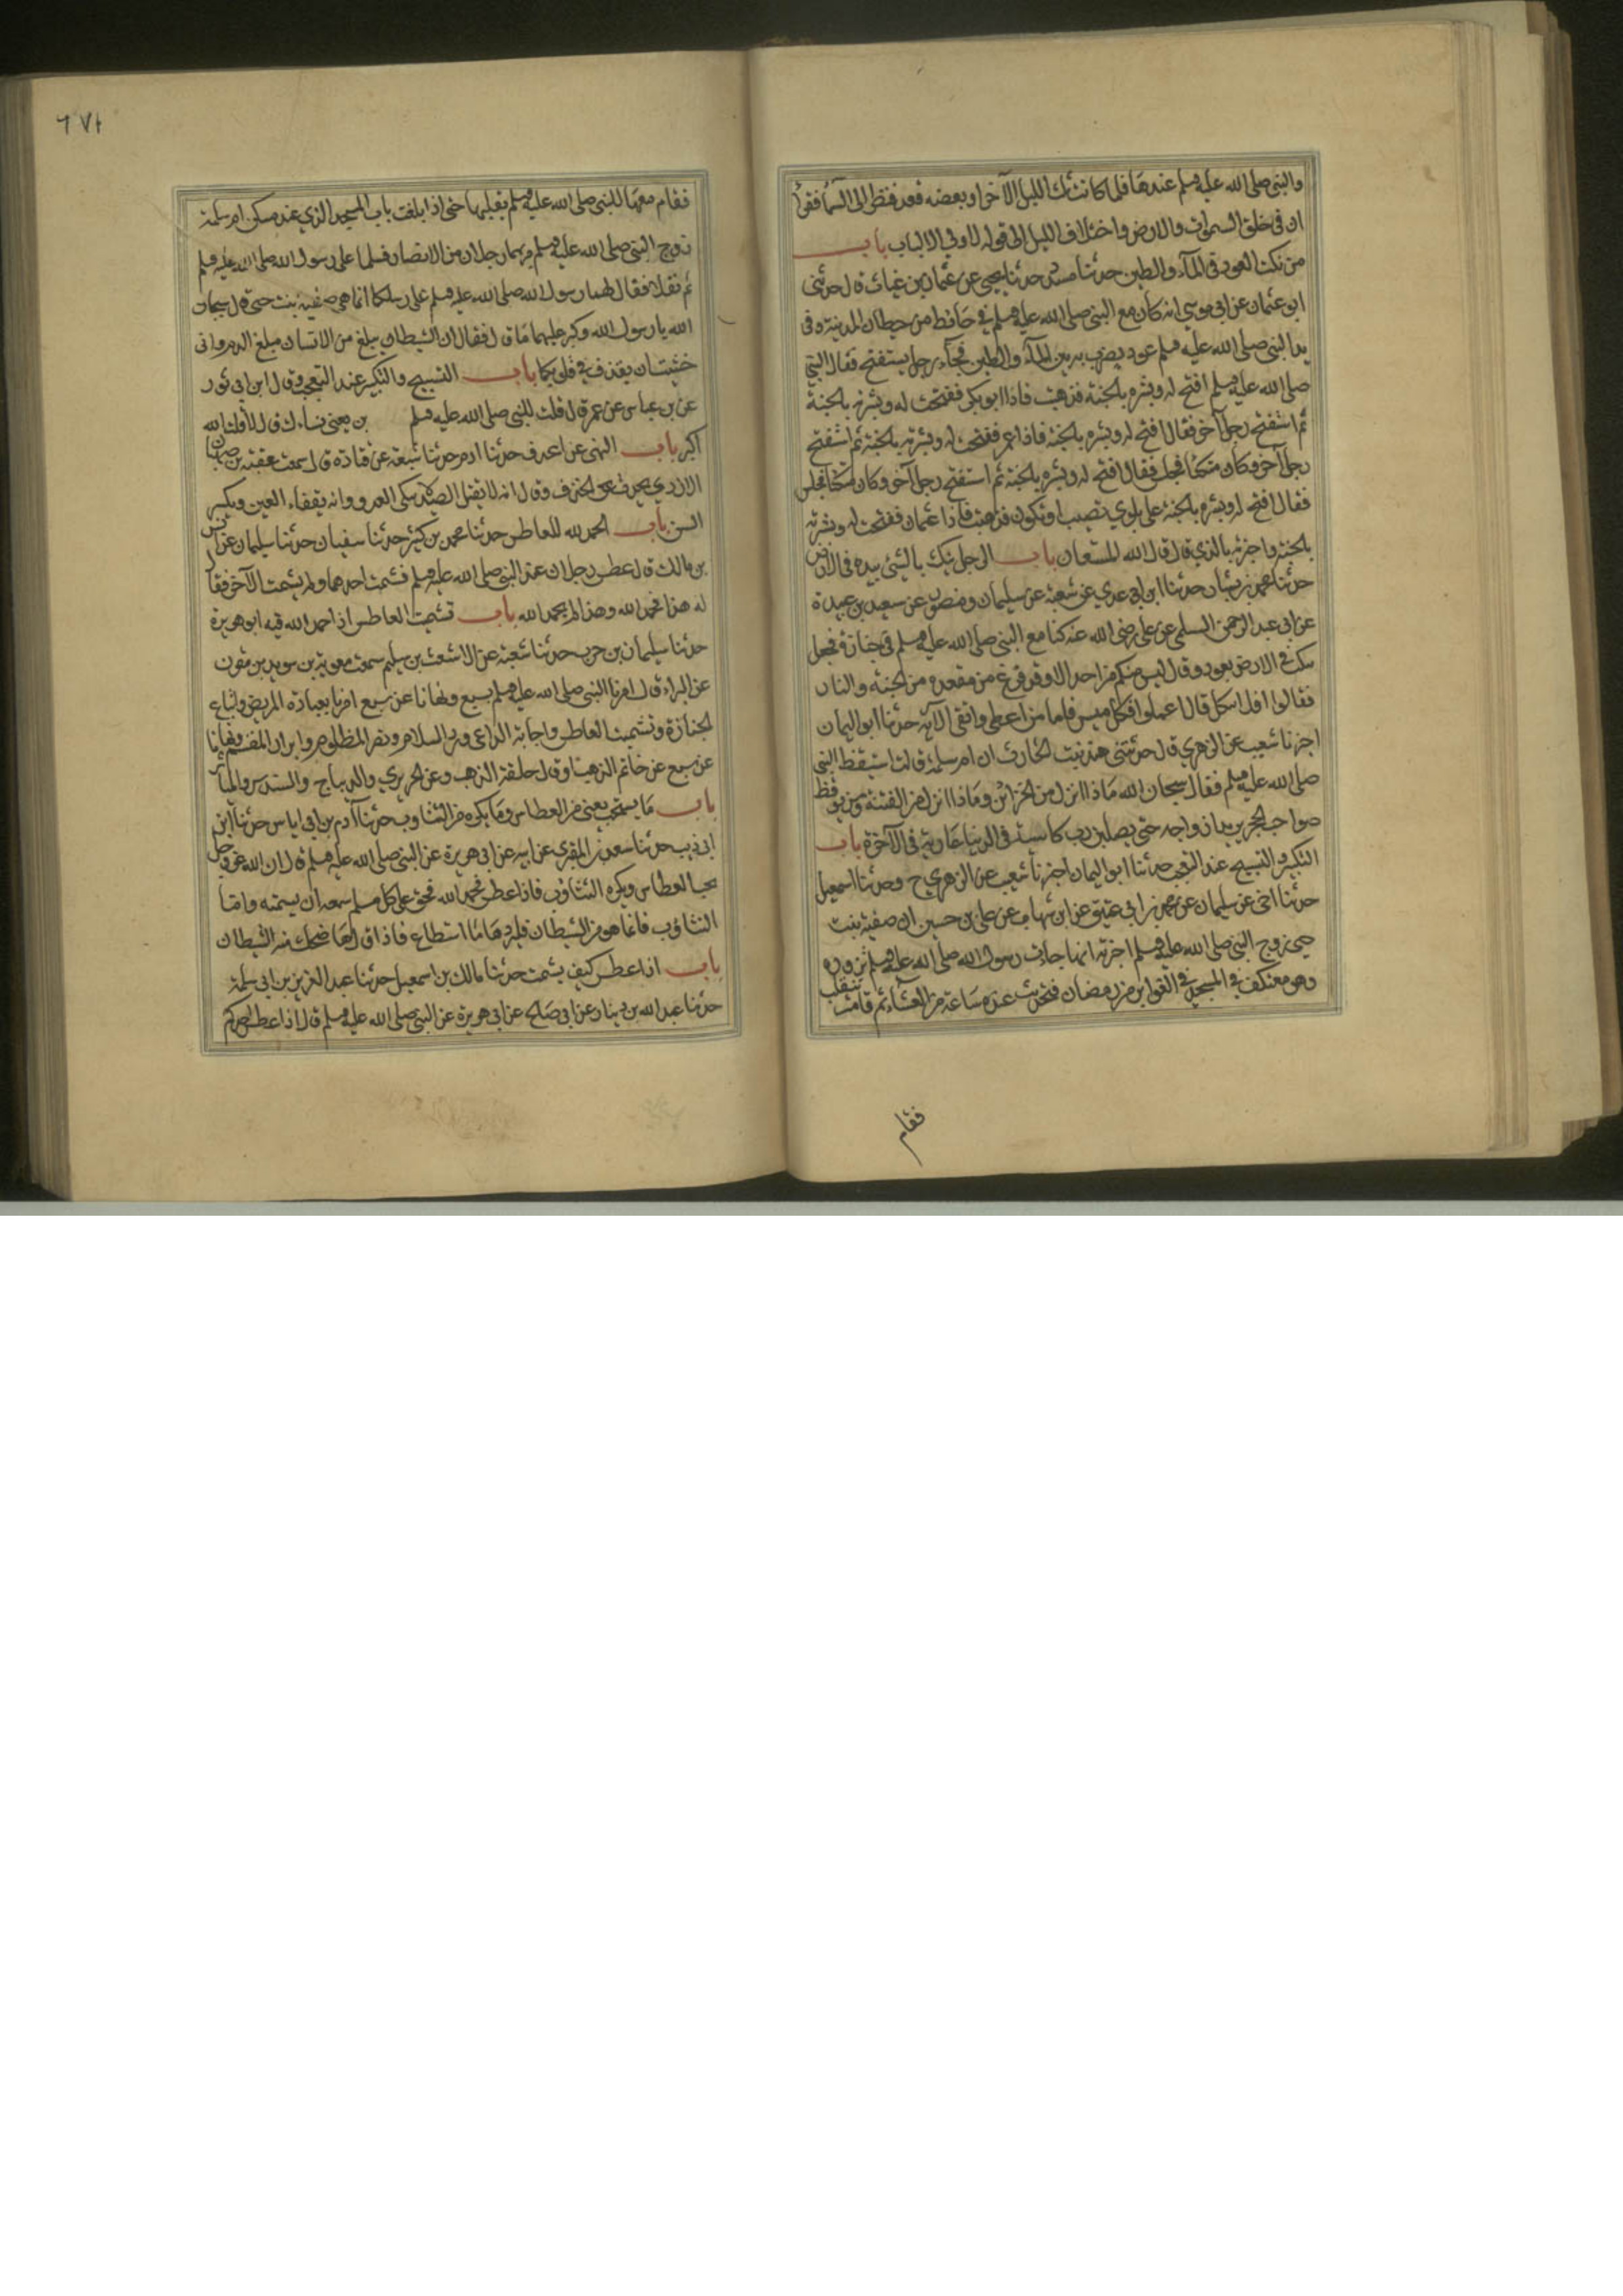 والنبي صلى الله عليه وسلم عندها فلما كان ثلث الليل الآخر او بعضه قعد فنظر الى السماء فقرأ
ان في خلق السموات والارض واختلاف الليل الى قوله لاولي الالباب باب
من نكت العود في الماء والطين حدثنا مسدد حدثنا يحيى عن عثمان بن غياث قال حدثني
ابو عثمان عن ابي موسى انه كان مع النبي صلى الله عليه وسلم في حائط من حيطان المدينة وفي
يد النبي صلى الله عليه وسلم عود يضرب به بين الماء والطين فجاء رجل يستفتح فقال النبي
صلى الله عليه وسلم افتح له وبشره بالجنة فذهبت فاذا ابو بكر ففتحت له وبشرته بالجنة
ثم استفتح رجل آخر فقال افتح له وبشره بالجنة فاذا عمر ففتحت له وبشرته بالجنة ثم استفتح
رجل آخر وكان متكئا فجلس فقال افتح له وبشره بالجنة ثم استفتح رجل آخر وكان متكئا فجلس
فقال افتح له وبشره بالجنة على بلوى تصيبه او تكون فذهبت فاذا عثمان ففتحت له وبشرته
بالجنة واخبرته بالذي قال قال الله المستعان باب الرجل ينكت بالشيئ بيده في الارض
حدثنا محمد بن بشار حدثنا ابن ابي عدي عن شعبة عن سليمان ومنصور عن سعد بن عبيدة
عن ابي عبد الرحمن السلمي عن علي رضى الله عنه كنا مع النبي صلى الله عليه وسلم في جنازة فجعل
ينكت في الارض بعود وقال ليس منكم من احد الا وقد فرغ من مقعده من الجنة والنار
فقالوا افلا نتكل قال اعملوا فكل ميسر فاما من اعطى واتقى الآية حدثنا ابو اليمان
اخبرنا شعيب عن الزهري قال حدثتني هند بنت الحارث ان ام سلمة قالت استيقظ النبي
صلى الله عليه وسلم فقال سبحان الله ماذا انزل من الخزائن وماذا انزل من الفتنة من يوقظ
صواحب الحجر يريد ازواجه حتى يصلين رب كاسية في الدنيا عارية في الآخرة باب
التكبير والتسبيح عند التعجب حدثنا ابو اليمان اخبرنا شعيب عن الزهري ح وحدثنا اسمعيل
حدثنا اخي عن سليمان عن محمد بن ابي عتيق عن ابن شهاب عن علي بن حسين ان صفية بنت
حيي زوج النبي صلى الله عليه وسلم اخبرته انها جاءت رسول الله صلى الله عليه وسلم تزوره
وهو معتكف في المسجد في الغوابر من رمضان فتحدثت عنده ساعة من العشاء ثم قامت تنقلب
فقام
٦٧١
فقام معها النبي صلى الله عليه وسلم يقلبها حتى اذا بلغت باب المسجد الذي عند مسكن ام سلمة
زوج النبي صلى الله عليه وسلم مر بهما رجلان من الانصار فسلما على رسول الله صلى الله عليه وسلم
ثم نفذا فقال لهما رسول الله صلى الله عليه وسلم على رسلكما انما هي صفية بنت حيي قال سبحان
الله يا رسول الله وكبر عليهما ما قال فقال ان الشيطان يبلغ من الانسان مبلغ الدم واني
خشيت ان يقذف في قلوبكما باب التسبيح والتكبير عند التعجب وقال ابن ابي ثور
عن بن عباس عن عمر قال قلت للنبي صلى الله عليه وسلم يعني نساءك قال لا قلت الله
اكبر باب النهى عن الخذف حدثنا ادم حدثنا شعبة عن قتادة قال سمعت عقبة بن صهبان
الازدي الخذف وقال انه لا يقتل الصيد ولا ينكى العدو وانه يفقاء العين ويكسر
السن باب الحمد لله للعاطس حدثنا محمد بن كثير حدثنا سفيان حدثنا سليمان عن انس
بن مالك قال عطس رجلان عند النبي صلى الله عليه وسلم فشمت احدهما ولم يشمت الآخر فقال
له هذا فحمد الله وهذا لم يحمد الله باب تشميت العاطس اذا حمد الله فيه ابو هريرة
حدثنا سليمان بن حرب حدثنا شعبة عن الاشعث بن سليم سمعت معوية بن سويد بن مقرن
عن البراء قال امرنا النبي صلى الله عليه وسلم بسبع ونهانا عن سبع امرنا بعيادة المريض واتباع
الجنازة وتشميت العاطس واجابة الداعي ورد السلام ونصر المظلوم وابرار المقسم ونهانا
عن سبع عن خاتم الذهب او قال حلقة الذهب وعن الحرير والديباج والسندس والمياثر
باب ما يستحب يعني من العطاس وما يكره من التثاوب حدثنا آدم بن ابي اياس حدثنا ابن
ابي ذيب حدثنا سعيد المقبري عن ابيه عن ابي هريرة عن النبي صلى الله عليه وسلم قال ان الله عز وجل
يحب العطاس ويكره التثاؤب فاذا عطس فحمد الله فحق على كل مسلم سمعه ان يشمته واما
التثاؤب فانما هو من الشيطان فليرده ما استطاع فاذا قال ها ضحك منه الشيطان
باب اذا عطس كيف يشمت حدثنا مالك بن اسمعيل حدثنا عبد العزيز بن ابي سلمة
حدثنا عبد الله بن دينار عن ابي صالح عن ابي هريرة عن النبي صلى الله عليه وسلم قال اذا عطس احدكم